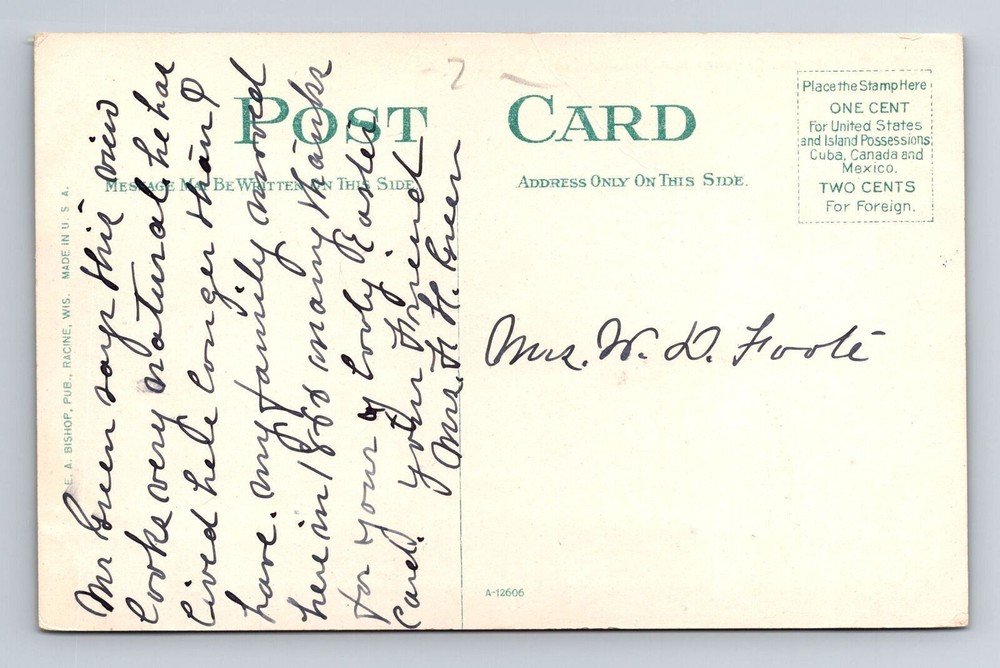 POST CARD
MESSAGE MAY BE WRITTEN ON THIS SIDE
ADDRESS ONLY ON THIS SIDE.
Place the Stamp Here
ONE CENT
For United States
and Island Possessions
Cuba, Canada and
Mexico.
TWO CENTS
For Foreign.
E. A. BISHOP, PUB., RACINE, WIS. MADE IN U. S. A.
Mr Green says this view
looks very natural, he has
lived here longer than I
have. my family moved
here in 1880 many thanks
for your lovly Easter
Card. your Friend
Mrs. F. H. Green
Mrs. W. D. Foote
A-12606